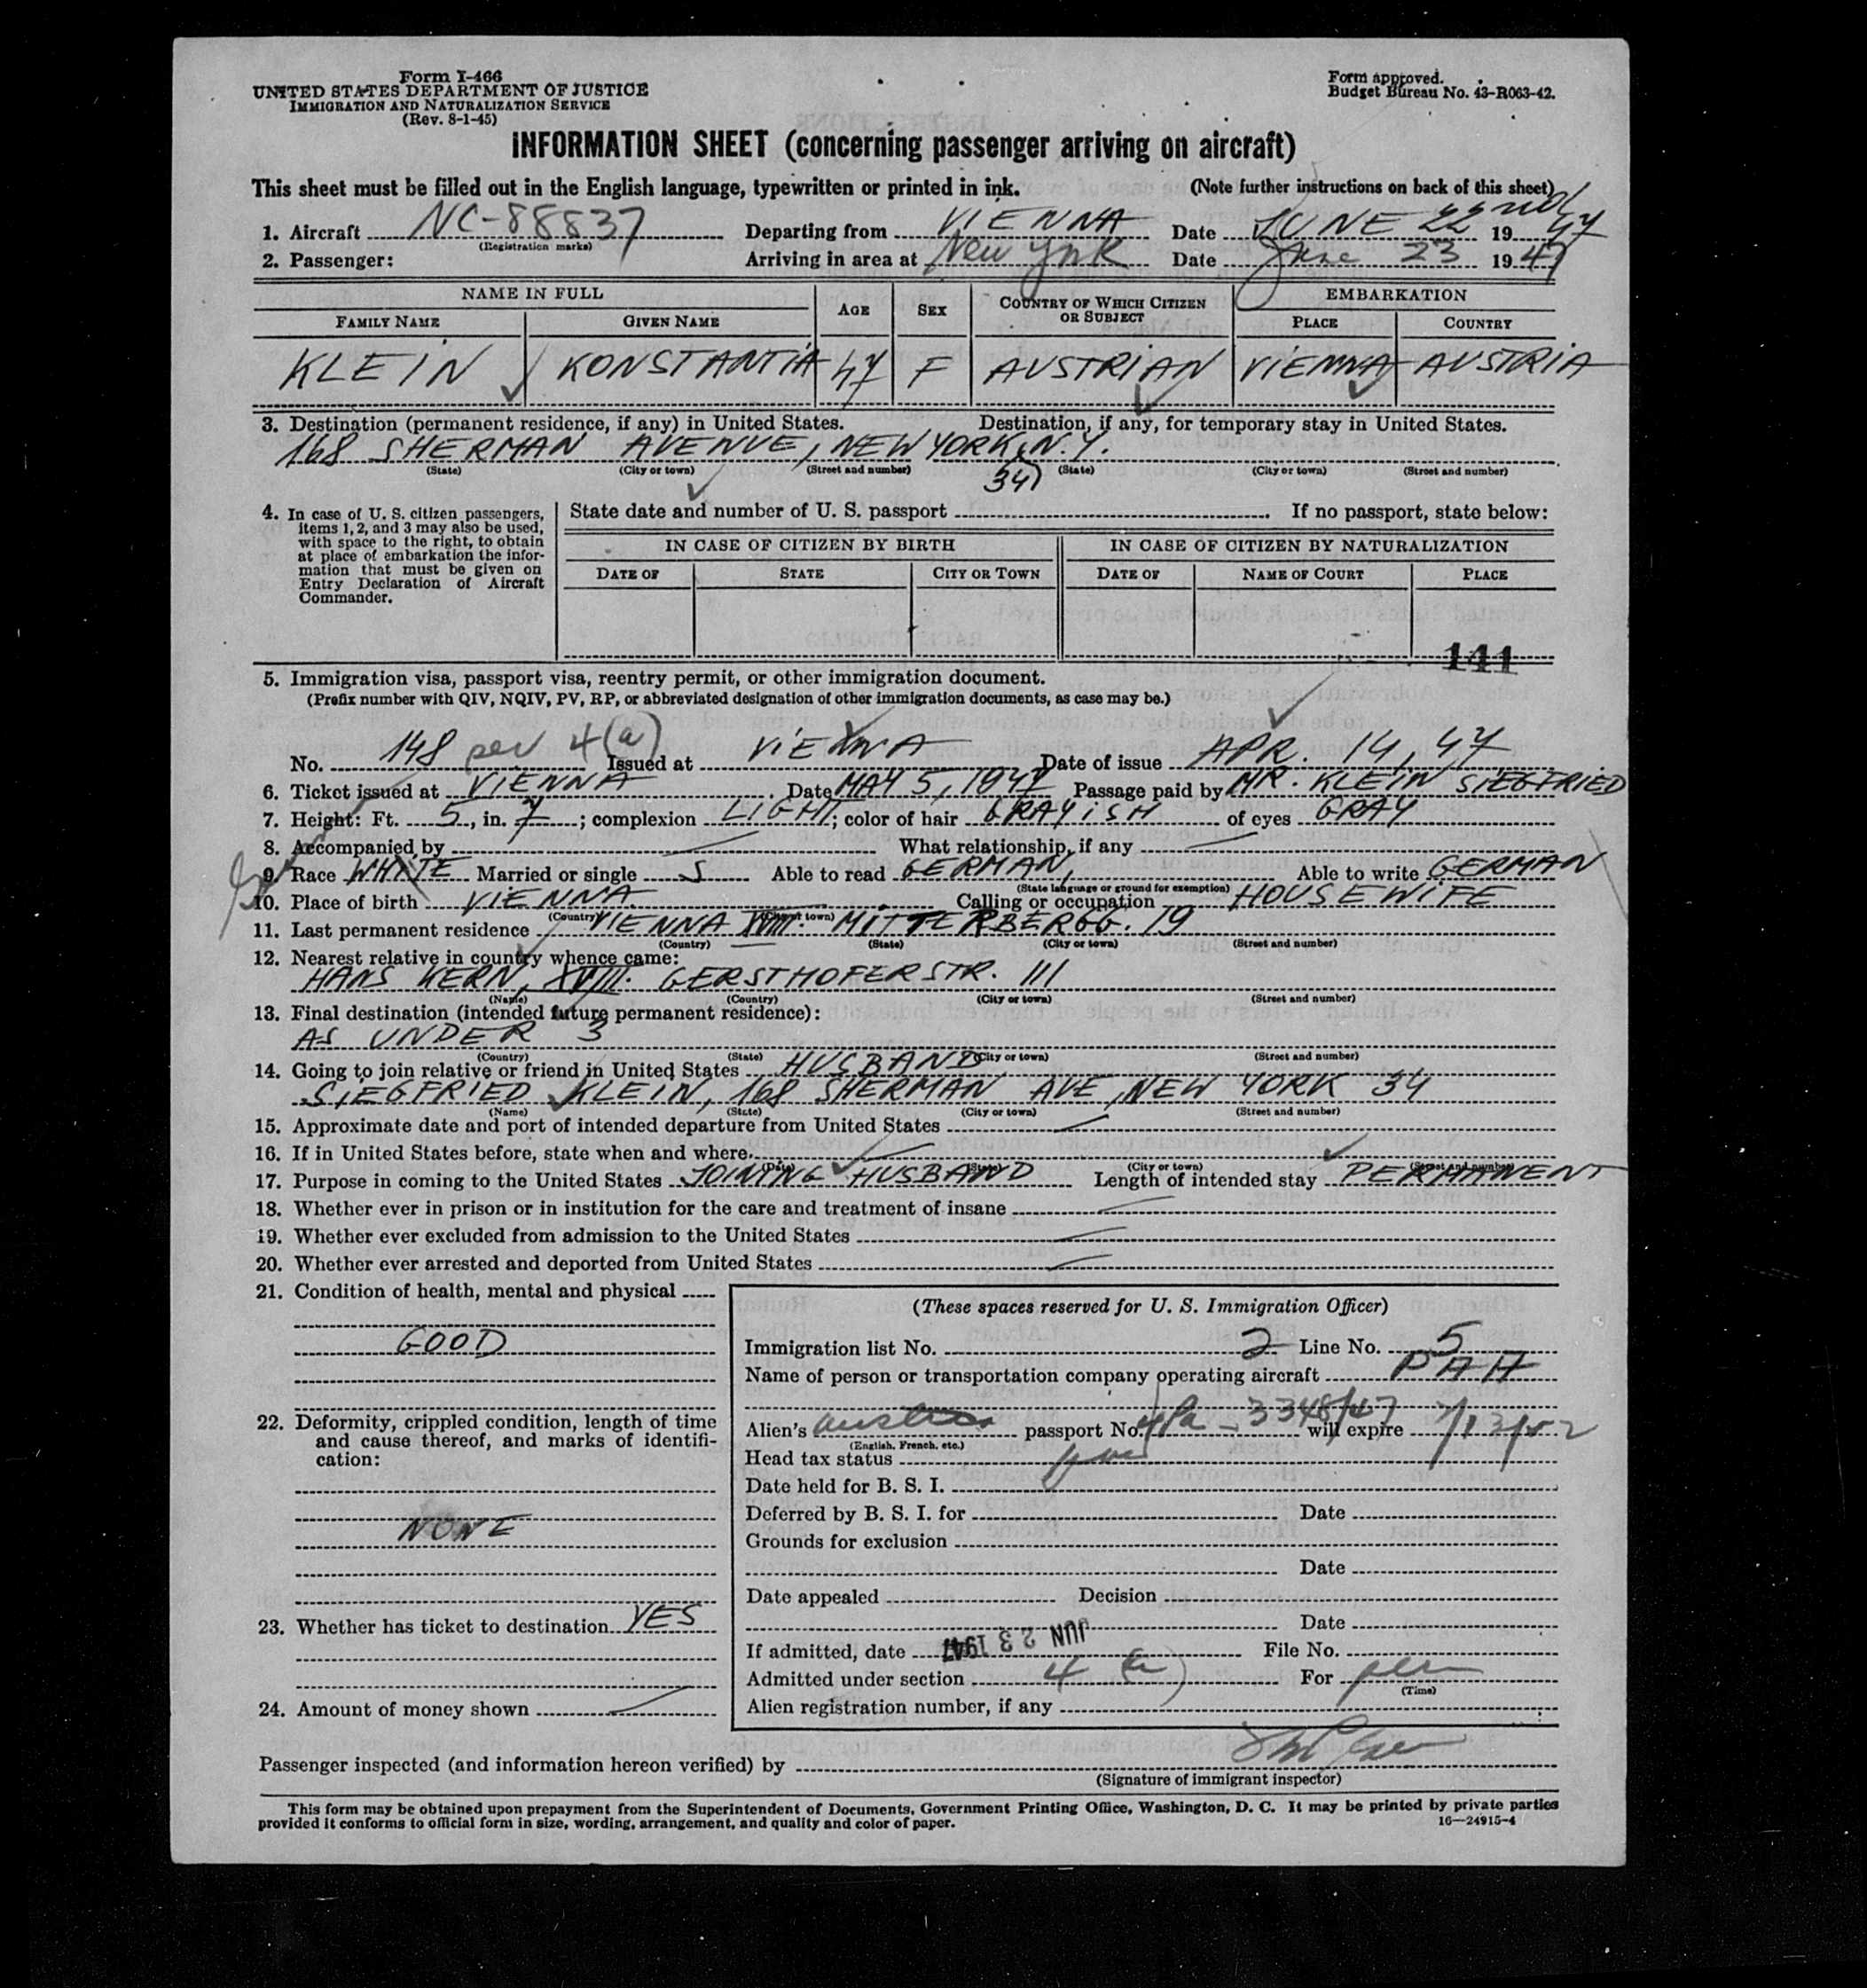 Form I-466
UNITED STATES DEPARTMENT OF JUSTICE
IMMIGRATION AND NATURALIZATION SERVICE
(Rev. 8-1-45)
Form approved.
Budget Bureau No. 43-R063-42.
INFORMATION SHEET (concerning passenger arriving on aircraft)
This sheet must be filled out in the English language, typewritten or printed in ink. (Note further instructions on back of this sheet)
1. Aircraft NC-88837 Departing from VIENNA Date JUNE 22nd 1947
(Registration marks)
2. Passenger: Arriving in area at New York Date June 23 1947
NAME IN FULL AGE SEX COUNTRY OF WHICH CITIZEN OR SUBJECT EMBARKATION
FAMILY NAME GIVEN NAME PLACE COUNTRY
KLEIN KONSTANTIA 47 F AUSTRIAN VIENNA AUSTRIA
3. Destination (permanent residence, if any) in United States. Destination, if any, for temporary stay in United States.
168 SHERMAN AVENUE, NEW YORK, N.Y.
(State) (City or town) (Street and number) (State) (City or town) (Street and number)
34)
4. In case of U. S. citizen passengers, items 1, 2, and 3 may also be used, with space to the right, to obtain at place of embarkation the information that must be given on Entry Declaration of Aircraft Commander.
State date and number of U. S. passport If no passport, state below:
IN CASE OF CITIZEN BY BIRTH IN CASE OF CITIZEN BY NATURALIZATION
DATE OF STATE CITY OR TOWN DATE OF NAME OF COURT PLACE
141
5. Immigration visa, passport visa, reentry permit, or other immigration document.
(Prefix number with QIV, NQIV, PV, RP, or abbreviated designation of other immigration documents, as case may be.)
No. 148 per 4(a) Issued at VIENNA Date of issue APR. 14, 47
6. Ticket issued at VIENNA Date MAY 5, 1947 Passage paid by MR. KLEIN SIEGFRIED
7. Height: Ft. 5, in. 7; complexion LIGHT; color of hair GRAYISH of eyes GRAY
8. Accompanied by What relationship, if any
9. Race WHITE Married or single S Able to read GERMAN, Able to write GERMAN
(State language or ground for exemption)
10. Place of birth VIENNA Calling or occupation HOUSEWIFE
(Country) (City or town)
11. Last permanent residence VIENNA XVIII. MITTERBERGG. 19
(Country) (State) (City or town) (Street and number)
12. Nearest relative in country whence came:
HANS KERN, XVIII. GERSTHOFERSTR. 111
(Name) (Country) (City or town) (Street and number)
13. Final destination (intended future permanent residence):
AS UNDER 3
(Country) (State) (City or town) (Street and number)
14. Going to join relative or friend in United States HUSBAND
SIEGFRIED KLEIN, 168 SHERMAN AVE, NEW YORK 34
(Name) (State) (City or town) (Street and number)
15. Approximate date and port of intended departure from United States
16. If in United States before, state when and where
(Date) (State) (City or town) (Street and number)
17. Purpose in coming to the United States JOINING HUSBAND Length of intended stay PERMANENT
18. Whether ever in prison or in institution for the care and treatment of insane
19. Whether ever excluded from admission to the United States
20. Whether ever arrested and deported from United States
21. Condition of health, mental and physical
GOOD
22. Deformity, crippled condition, length of time and cause thereof, and marks of identification:
NONE
23. Whether has ticket to destination YES
24. Amount of money shown
(These spaces reserved for U. S. Immigration Officer)
Immigration list No. 2 Line No. 5
Name of person or transportation company operating aircraft PAA
Alien's passport No. 3348/47 will expire
(English, French, etc.)
Head tax status
Date held for B. S. I.
Deferred by B. S. I. for Date
Grounds for exclusion
Date
Date appealed Decision
Date
If admitted, date JUN 23 1947 File No.
Admitted under section 4 (a) For per
(Time)
Alien registration number, if any
Passenger inspected (and information hereon verified) by
(Signature of immigrant inspector)
This form may be obtained upon prepayment from the Superintendent of Documents, Government Printing Office, Washington, D. C. It may be printed by private parties
provided it conforms to official form in size, wording, arrangement, and quality and color of paper. 16—24915-4